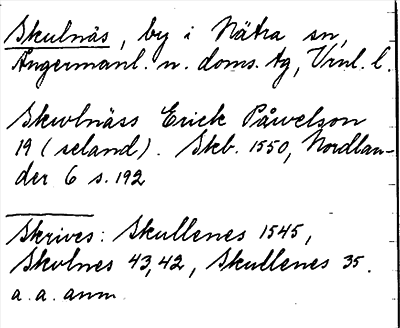 Skulnäs, by i Nätra sn,
Ångermanl. n. doms. tg, Vrnl. l.
Skwlnäss Erick Påwelson
19 (seland). Skb. 1550, Nordlan-
der 6 s. 192
Skrives: Skullenes 1545,
Skolnes 43, 42, Skullenes 35.
a. a. anm